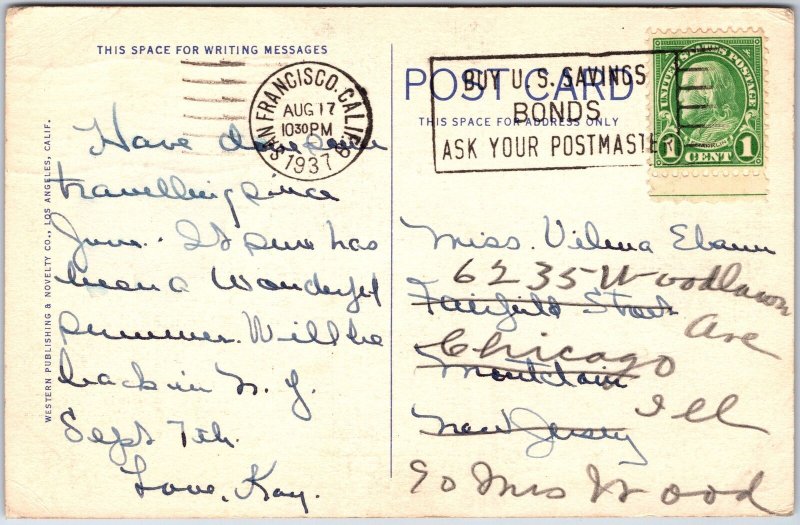 THIS SPACE FOR WRITING MESSAGES
SAN FRANCISCO, CALIF.
AUG 17
10 30 PM
1937
BUY U.S. SAVINGS
BONDS
ASK YOUR POSTMASTER
POST CARD
THIS SPACE FOR ADDRESS ONLY
UNITED STATES POSTAGE
1 CENT 1
WESTERN PUBLISHING & NOVELTY CO., LOS ANGELES, CALIF.
Have done some
travelling since
June. It sure has
been a wonderful
summer. Will be
back in N. J.
Sept 7th.
Love, Kay.
Miss. Vilma
6235 Woodlawn
Fairfield Street
Ave
Chicago
Montclair
Ill
New Jersey
c/o Mrs Wood